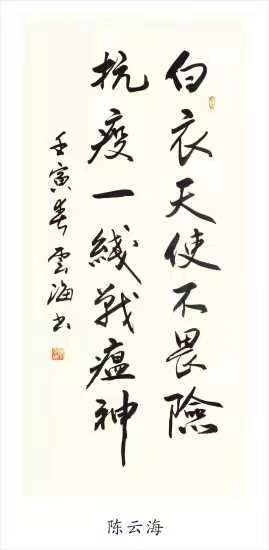 白衣天使不畏險
抗疫一綫戰瘟神
壬寅春雲海书
陈云海